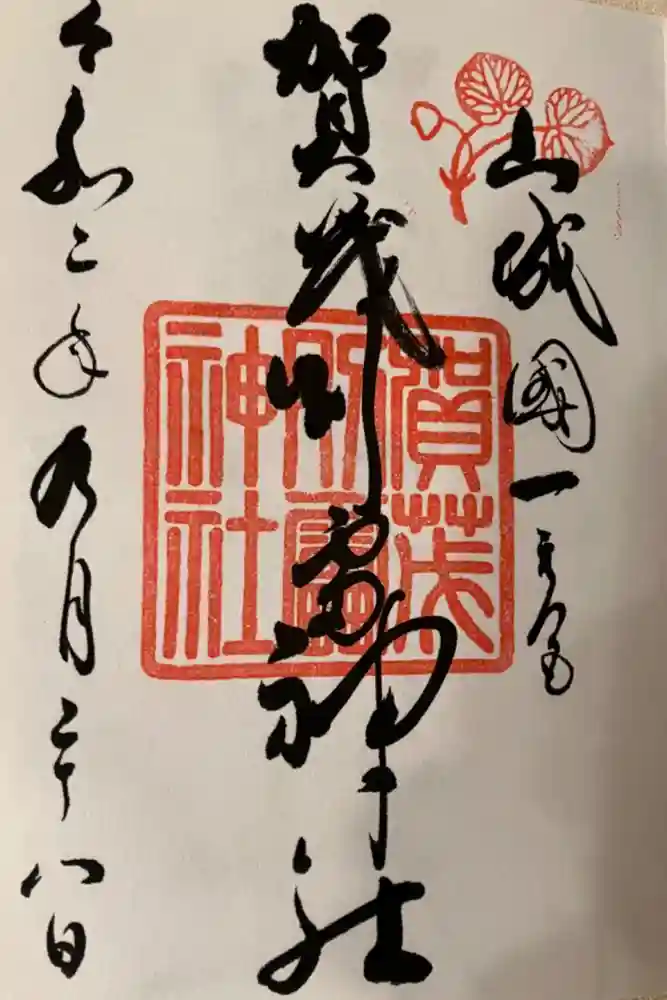 山城國一之宮
賀茂別雷神社
賀茂
別雷
神社
令和二年九月二十八日